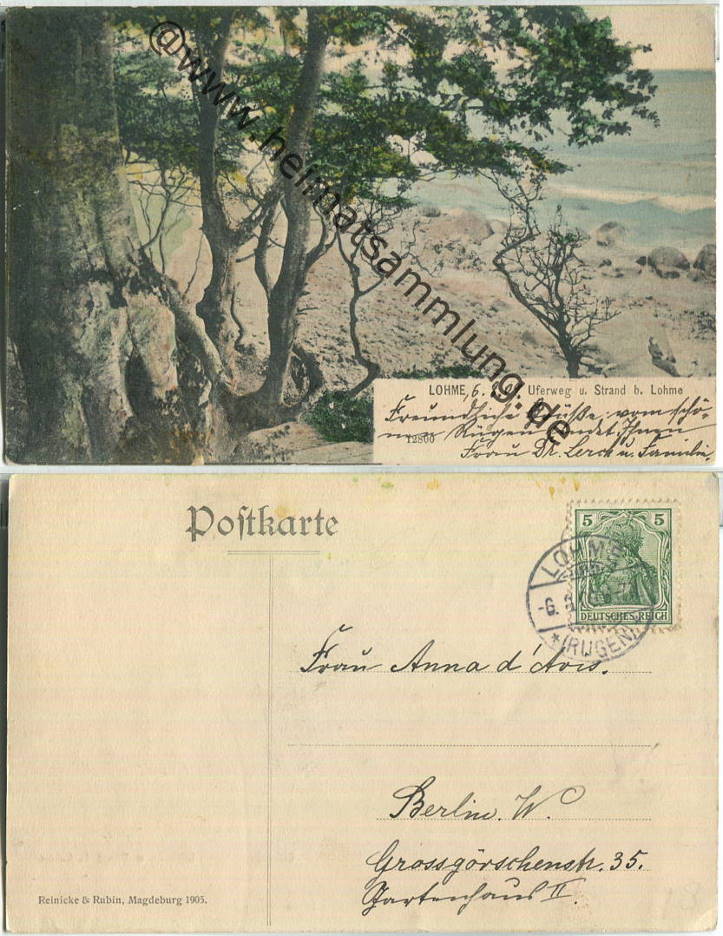 @www.heimatsammlung.de
LOHME, Uferweg u. Strand b. Lohme
Freundliche Grüße vom schö-
nen Rügen sendet Ihnen
12800
Frau Dr. Lerch u. Familie.
Postkarte
5 5
DEUTSCHES REICH
LOHME
-6.
* (RÜGEN)
Frau Anna d'Avis.
Berlin. W.
Grossgörschenstr. 35.
Gartenhaus II.
Reinicke & Rubin, Magdeburg 1905.